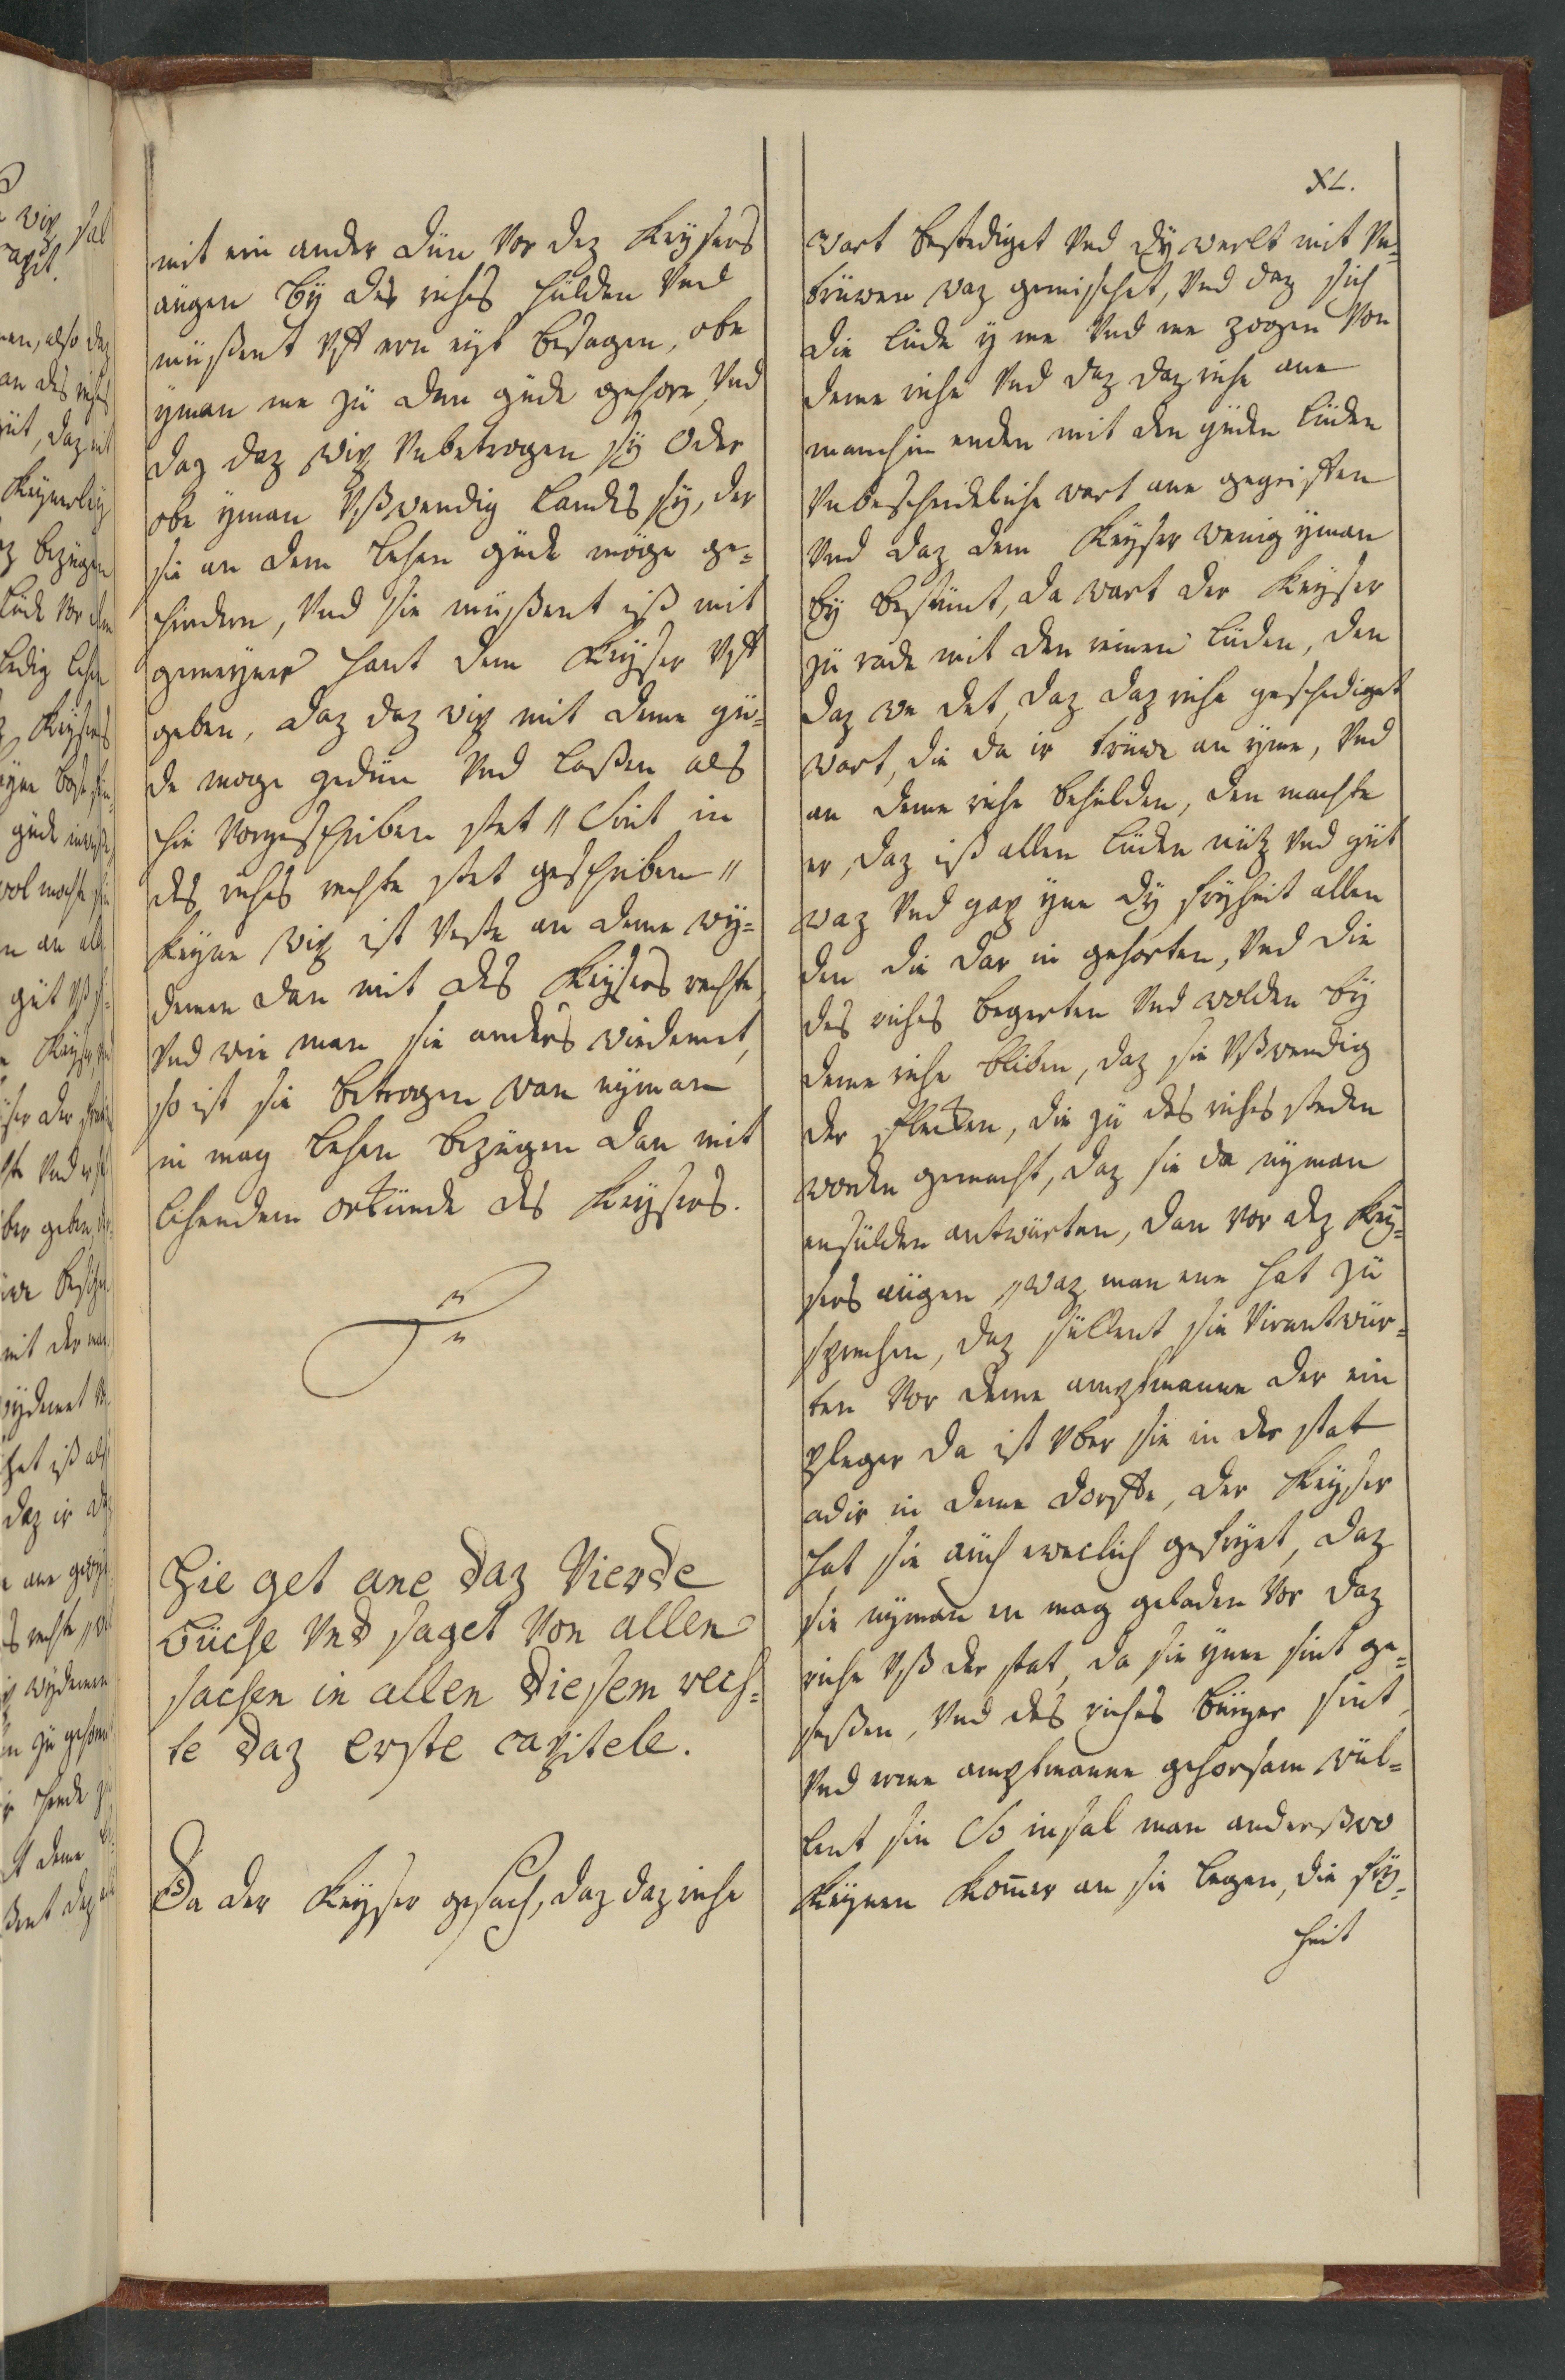 XL.
mit ein ander dün vor dez Keysers
augen bÿ des riches hülden vnd
müßent vff ern eyt besagen, obe
yman me zü dem güde gehore, vnd
daz daz wip vnbetrogen sÿ oder
obe yman vßwendig landes sÿ, der
sie an dem lehen güde möge ge=
hindern, vnd sie müßent iß mit
gemeyner hant dem Keyser vff
geben, daz daz wip mit deme gü=
de moge gedün vnd laßen als
hie vorgeschriben stet // Sint in
des riches rechte stet geschriben //
keyne wip ist veste an deme wÿ=
demen dan mit des Keysers rechte,
vnd wie man sie anders wiedemet,
so ist sie betrogen wan nÿman
in mag lehen bezügen dan mit
lihendem orkünde des Keysers.
Hie get ane daz vierde
büche vnd saget von allen
sachen in allen diesem rech=
te daz erste capitele.
Da der Keyser gesach, daz daz riche
wart bestediget vnd dÿ werlt mit vn=
trüwen waz gemischet, vnd daz sich
die lüde ÿ me vnd me zogen von
deme riche vnd daz daz riche ane
manchin enden mit den güden lüden
vnbescheideliche wart ane gegriffen
vnd daz dem Keyser wenig yman
bÿ bestünt, da wart der Keyser
zü rade mit den reinen lüden, den
daz we det, daz daz riche geschediget
wart, die da ir trüwe an yme, vnd
an deme riche behilden, den machte
er, daz iß allen lüden nütz vnd güt
waz vnd gap yne dÿ fryheit allen
den die dar in gehorten, vnd die
des riches begerten vnd wolden bÿ
deme riche bliben, daz sie vßwendig
der flecken, die zü des riches steden
worden gemacht, daz sie da nyman
ensülden antwürten, dan vor dez Key=
sers aügen, waz man ene hat zü
sprechen, daz süllent sie virantwür=
ten vor deme amptmanne der ein
pleger da ist vber sie in der stat
adir in deme dorffe, der Keyser
hat sie aüch eweclich gefryet, daz
sie nyman en mag geladen vor daz
riche vß der stat, da sie ynne sint ge=
seßen, vnd des riches bürger sint,
vnd erme amptmanne gehorsam wül=
lent sin So insal man anderßwo
keynen komer an sie legen, die fry=
heit